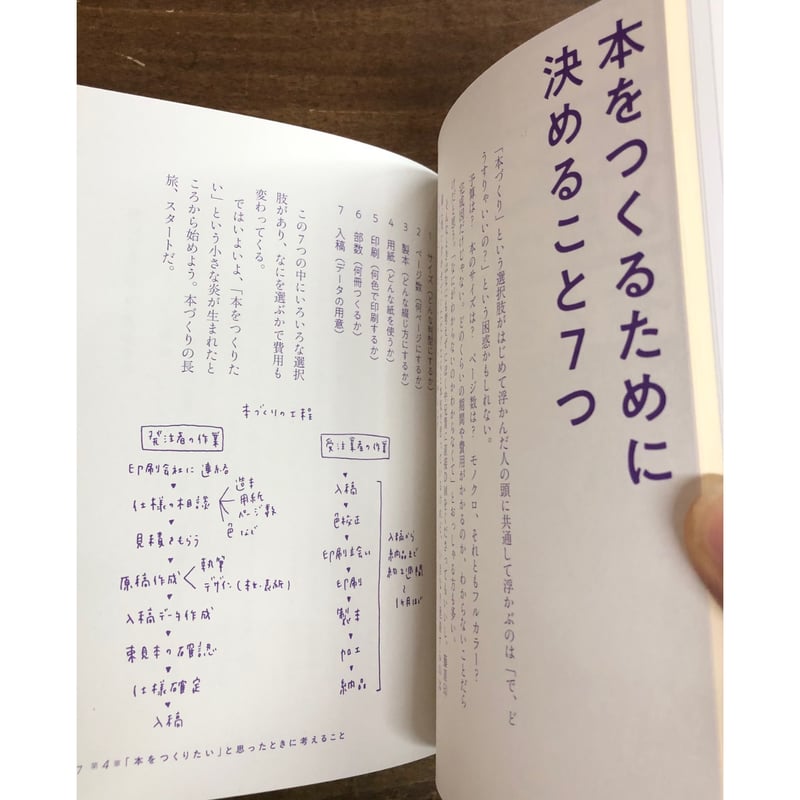 本をつくるために
決めること7つ
「本づくり」という選択肢がはじめて浮かんだ人の頭に共通して浮かぶのは「で、ど
うすりゃいいの？」という困惑かもしれない。
予算は？ 本のサイズは？ ページ数は？ モノクロ、それともフルカラー？
どのくらいの期間や費用がかかるのか、わからないことだら
1 サイズ（どんな判型にするか）
2 ページ数（何ページにするか）
3 製本（どんな綴じ方にするか）
4 用紙（どんな紙を使うか）
5 印刷（何色で印刷するか）
6 部数（何冊つくるか）
7 入稿（データの用意）
この7つの中にいろいろな選択
肢があり、なにを選ぶかで費用も
変わってくる。
ではいよいよ、「本をつくりた
い」という小さな炎が生まれたと
ころから始めよう。本づくりの長
旅、スタートだ。
本づくりの工程
発注者の作業
印刷会社に連絡
仕様の相談
造本
用紙
ページ数
色 など
見積をもらう
原稿作成
執筆
デザイン（本文・表紙）
入稿データ作成
束見本の確認
仕様確定
入稿
受注業者の作業
入稿
色校正
印刷立会い
印刷
製本
加工
納品
入稿から
納品まで
約2週間
〜
1ヶ月ほど
7 第4章「本をつくりたい」と思ったときに考えること